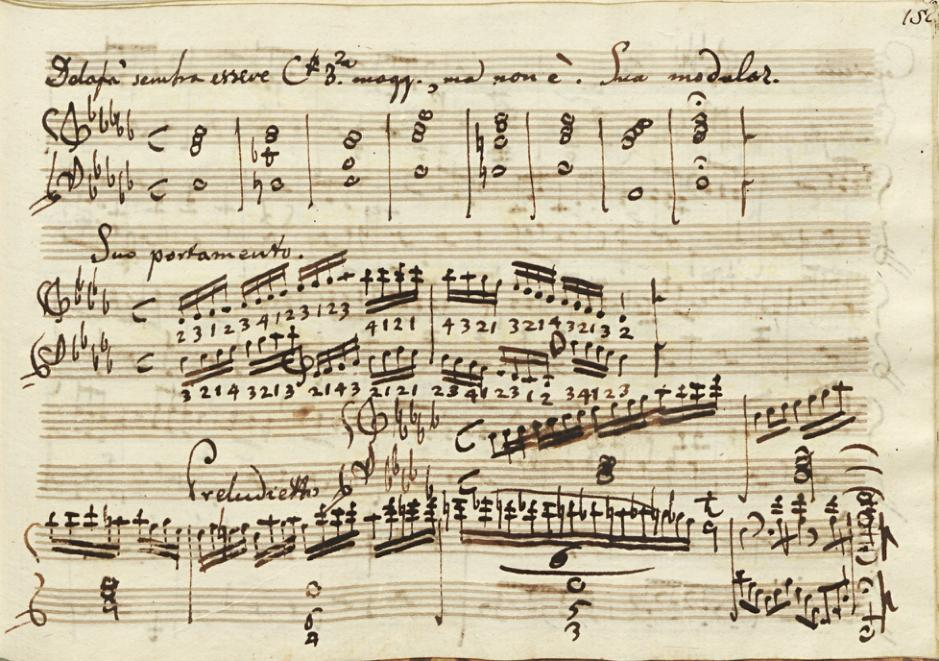 152
Ddafà sembra essere C# 3.2a magg., ma non è. Sua modolaz.
Suo portamento.
2 3 1 2 3 4 1 2 3 1 2 3 4 1 2 1 4 3 2 1 3 2 1 4 3 2 1 3 2
3 2 1 4 3 2 1 3 2 1 4 3 2 1 2 1 2 3 4 1 2 3 1 2 3 4 1 2 3
Preludietto
6
6 5
4 3